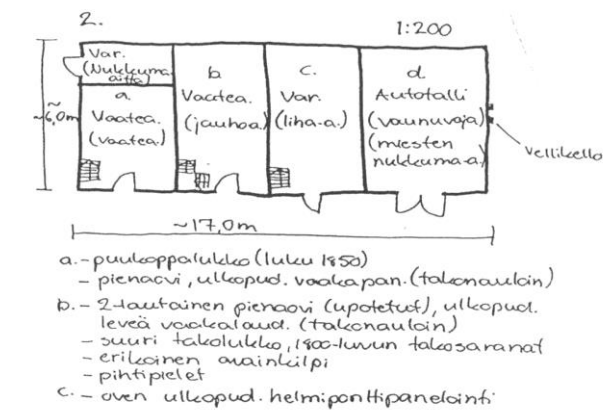 2.
1:200
Var.
(Nukkuma-
aitta)
a.
Vaatea.
(vaatea.)
b.
Vaatea.
(jauhoa.)
c.
Var.
(liha-a.)
d.
Autotalli
(vaunuvaja)
(miesten
nukkuma-a)
vellikello
~6,0m
~17,0m
a. - puukoppalukko (luku 1850)
- pienaovi, ulkopud. vaakapan. (takonauloin)
b. - 2-lautainen pienaovi (upotetut), ulkopud.
leveä vaakalaud. (takonauloin)
- suuri takolukko, 1800-luvun takosaranat
- erikoinen avainkilpi
- pihtipielet
c. - oven ulkopud. helmiponttipanelointi